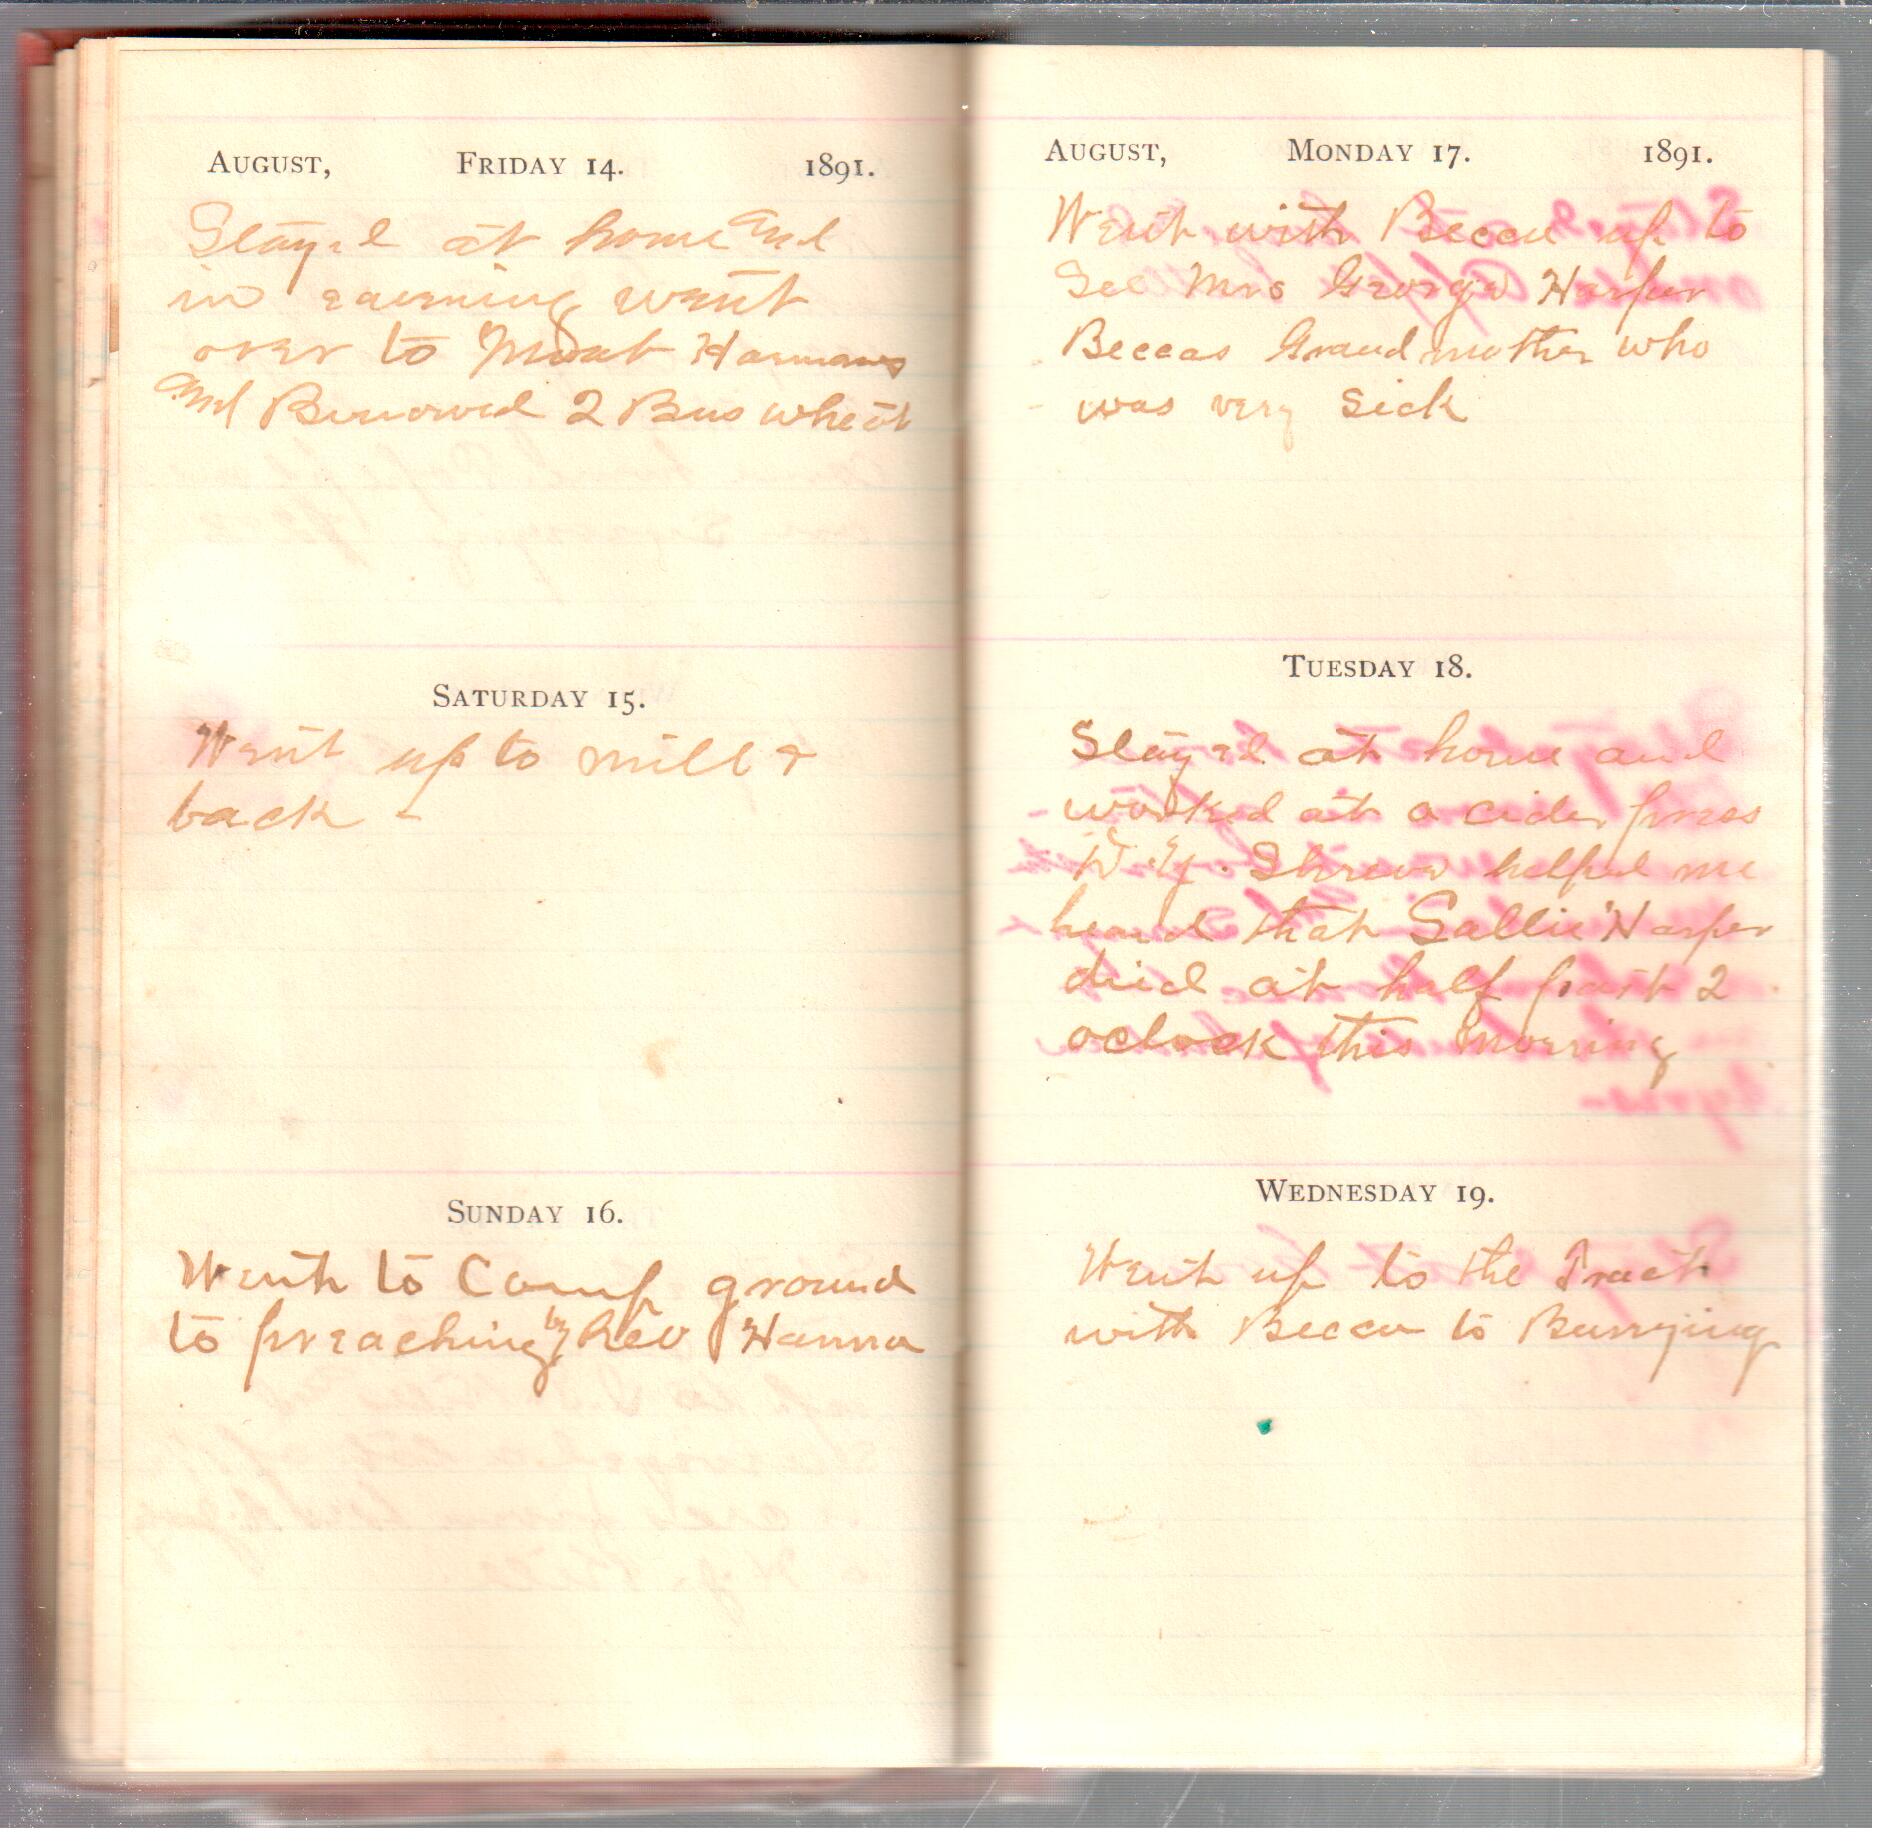 AUGUST, FRIDAY 14. 1891.
Stayed at home and
in evening went
over to Harmans
and Borrowed 2 Bus wheat
SATURDAY 15.
Went up to mill &
back -
SUNDAY 16.
Went to Camp ground
to preaching by Rev Hanna
AUGUST, MONDAY 17. 1891.
Went with Becca up to
See Mrs George Harper
Beccas Grandmother who
was very Sick
TUESDAY 18.
Stayed at home and
worked at a cider press
Shreve helped me
heard that Sallie Harper
died at half past 2
oclock this morning
WEDNESDAY 19.
Went up to the Tract
with Becca to Burrying